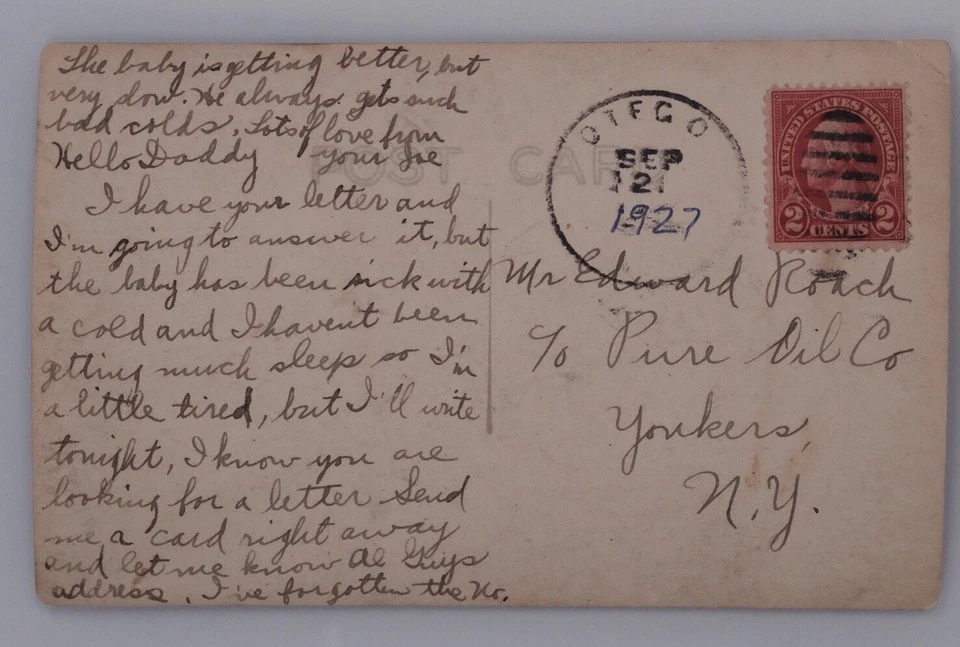 The baby is getting better, but
very slow. He always gets such
bad colds. Lots of love from
your Joe
Hello Daddy
I have your letter and
I'm going to answer it, but
the baby has been sick with
a cold and I havent been
getting much sleep so I'm
a little tired, but I'll write
tonight, I know you are
looking for a letter Send
me a card right away
and let me know Al Guys
address. I've forgotten the No.
POST CARD
OTEGO
SEP
21
1927
UNITED STATES POSTAGE
2 CENTS 2
Mr Edward Roach
c/o Pure Oil Co
Yonkers,
N.Y.